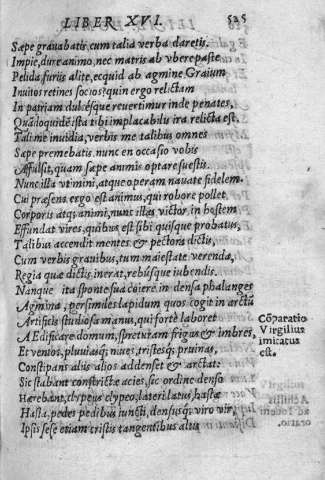 LIBER XVI. 525
Sæpe grauabatis, cum talia verba daretis.
Impie, dure animo, nec matris ab vbere paste
Pelida, furiis alite, ecquid ab agmine Graium
Inuitos retines socios? quin ergo relictam
In patriam dulcésque reuertimur inde penates,
Quãdoquidē ista tibi implacabilu ira relicta est.
Tali me inuidia, verbis me talibus omnes
Sæpe premebatis. nunc en occasio vobis
Affulsit, quam sæpe animis optare suestis.
Nunc illa vtimini, atque operam nauate fidelem.
Cui præsens ergo est animus, qui robore pollet
Corporis atq; animi, nunc illas victor in hostem
Effundat vires, quibus est sibi quisque probatus,
Talibus accendit mentes & pectora dictis,
Cum verbis grauibus, tum maiestate verenda,
Regia quæ dictis inerat, rebúsque iubendis.
Nanque ita sponte sua coiere in densa phalanges
Agmina, persimiles lapidum quos cogit in arctũ
Artificis studiosa manus, qui fortè laboret
AEdificare domum, spreturam frigus & imbres,
Et ventos, pluuiasq; nues, tristesq; pruinas,
Constipans alios alios addenset & arctat:
Sic stabant constrictæ acies, sic ordine denso
Hærebant, clypeus clypeo, lateri latus, hastæ
Hasta, pedes pedibus iuncti, densusq; viro vir,
Ipsis sese etiam cristis tangentibus altis
Cōparatio
Virgilius
imitatus
est.